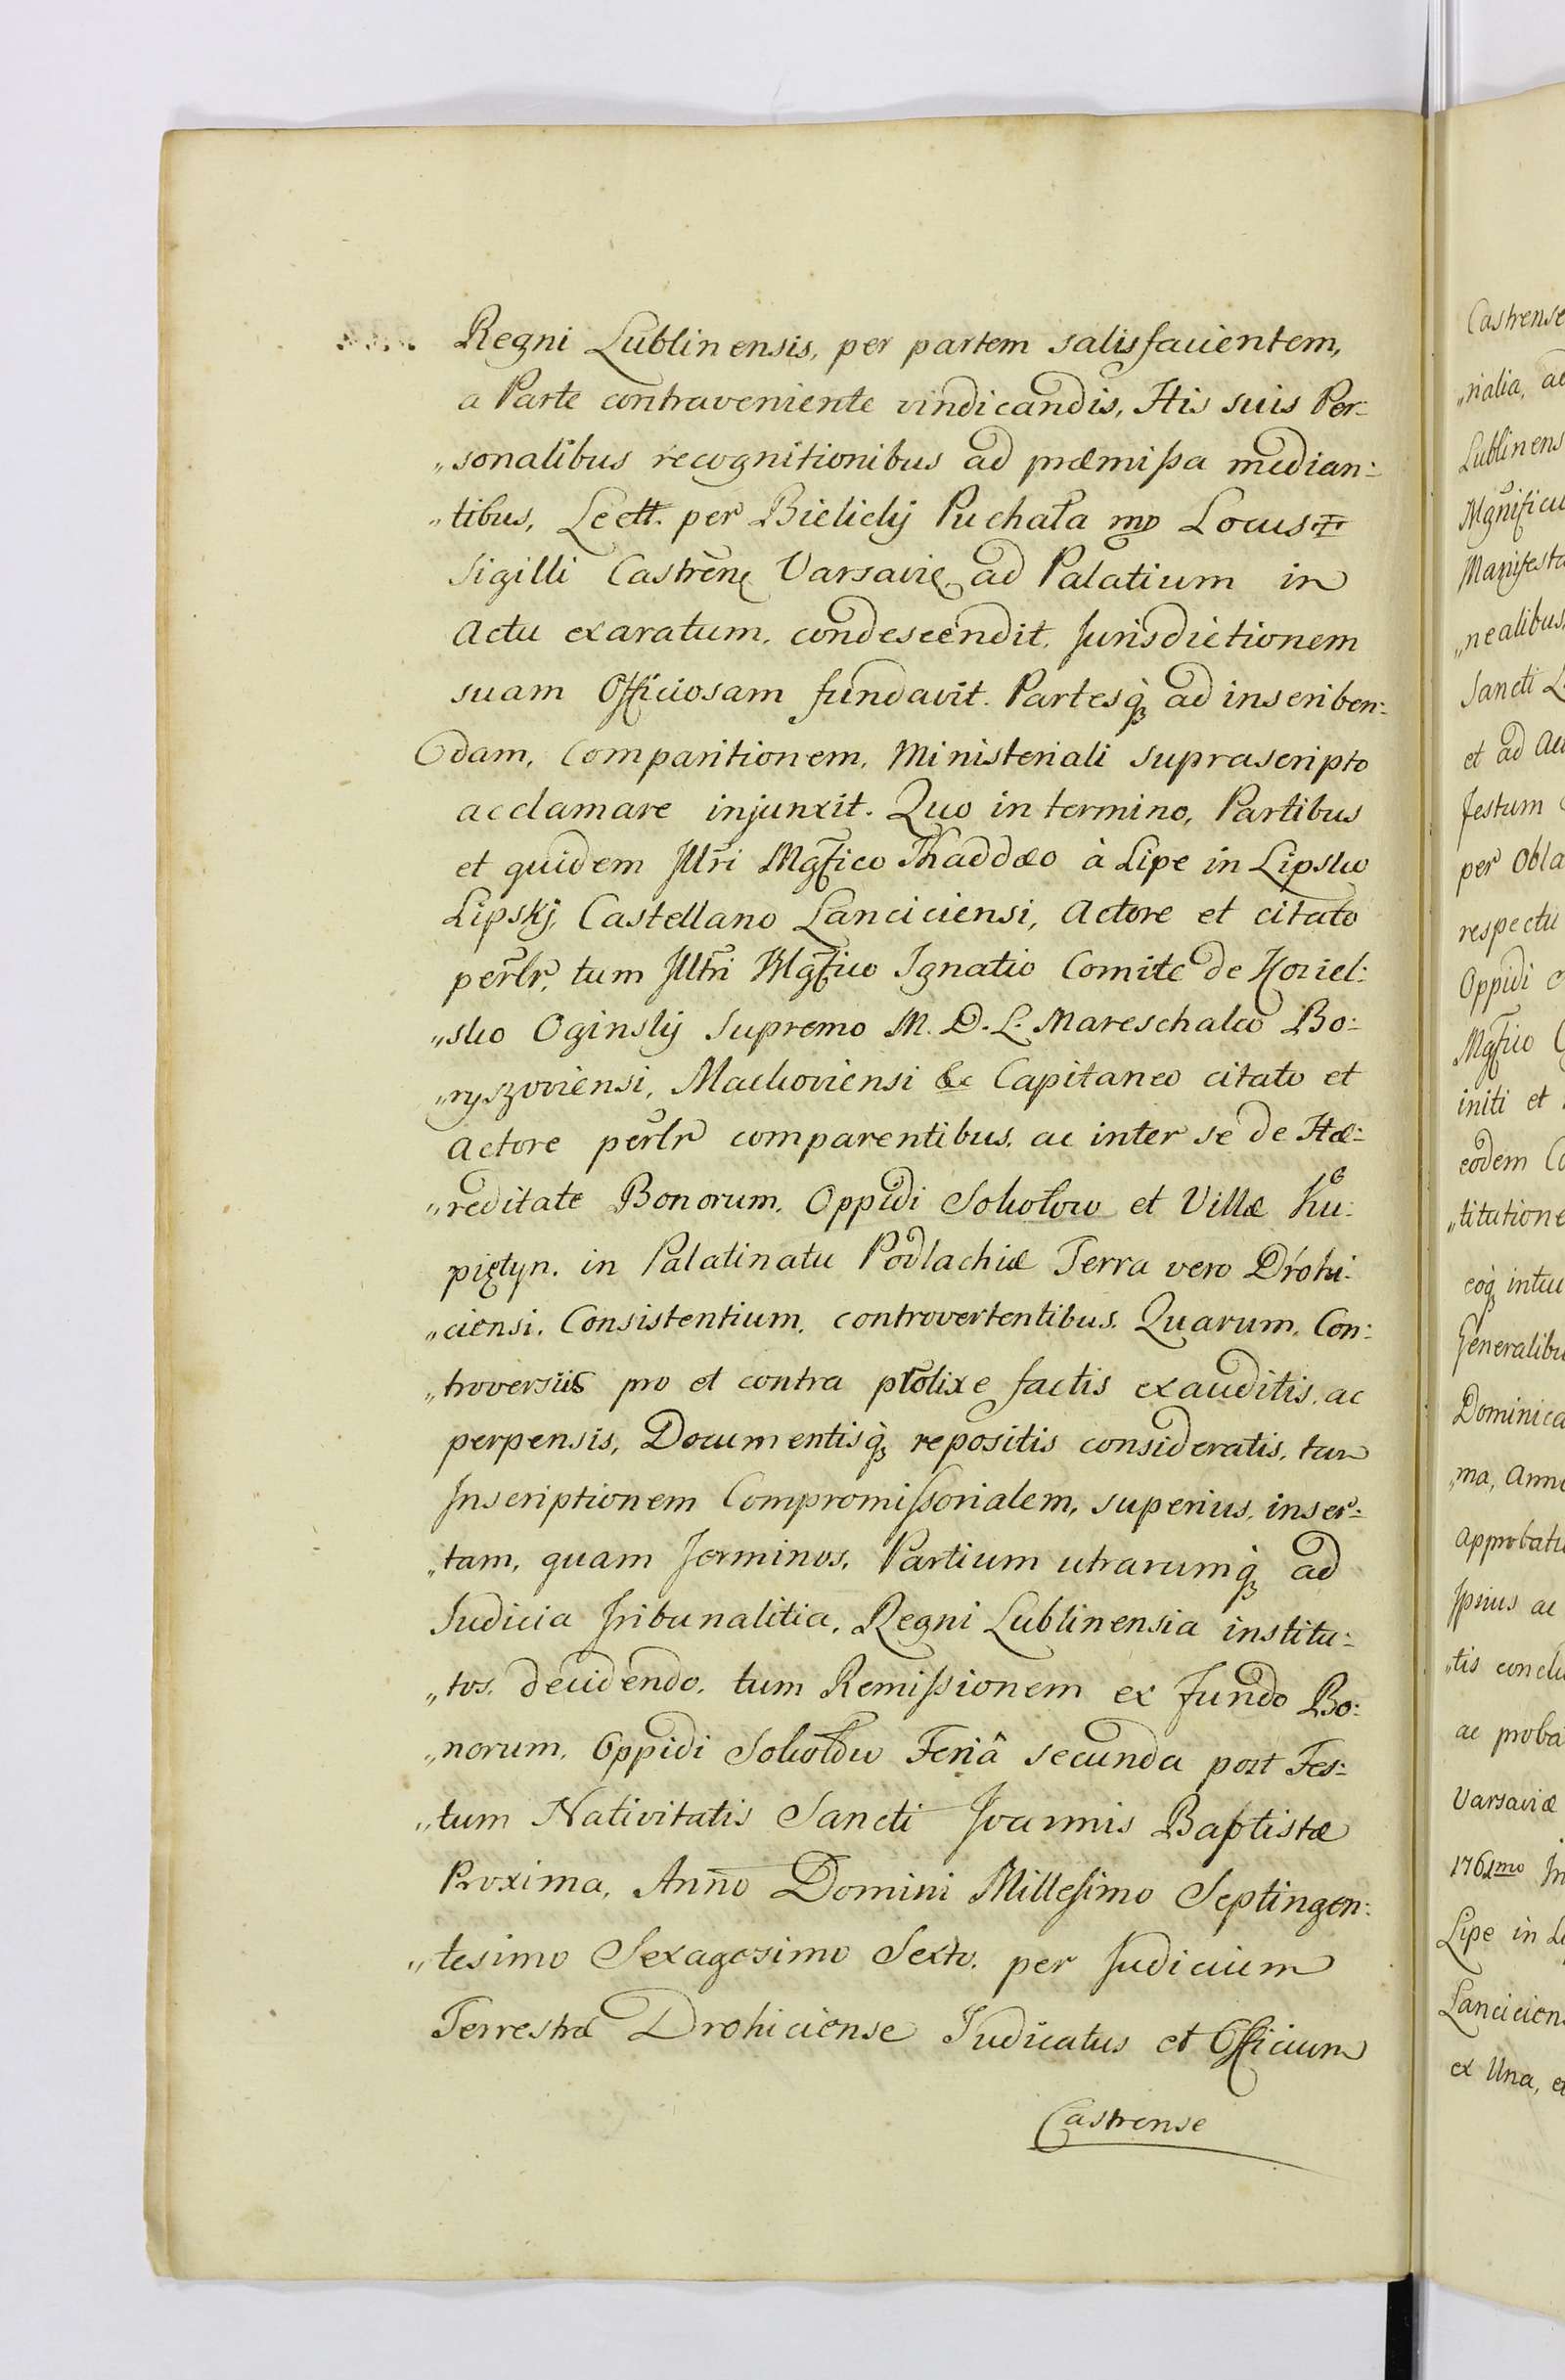 Regni Lublinensis, per partem satisfacientem,
a Parte contraveniente vindicandis, His suis Per:
„sonalibus recognitionibus ad præmissa median:
„tibus, Lectt. per Bielicky Puchała mp Locus
Sigilli Castrenẽ Varsavię ad Palatium in
Actu exaratum, condescendit, Jurisdictionem
suam Officiosam fundavit. Partesq́ꝫ ad inscriben:
dam, Comparitionem, Ministeriali suprascripto
acclamare injunxit. Quo in termino, Partibus
et quidem Jllr̃i Mgfico Thaddæo à Lipe in Lipsko
Lipskj, Castellano Lanciciensi, Actore et citato
per̃lr, tum Jlltr̃i Mgfico Ignatio Comite de Koziel:
„sko Oginsky Supremo M. D. L. Mareschalco Bo:
„ryszoviensi, Mackoviensi &c Capitaneo citato et
Actore per̃lr comparentibus, ac inter se de Hæ:
„reditate Bonorum, Oppidi Sokołow et Villæ Ku:
piętyn, in Palatinatu Podlachiæ Terra vero Drohi:
„ciensi, Consistentium, controvertentibus. Quarum, Con:
„troversiis pro et contra prolixe factis exauditis, ac
perpensis, Documentisq́ꝫ repositis consideratis, tam
Inscriptionem Compromissorialem, superius, inser:
„tam, quam Terminos, Partium utrarumq́ꝫ ad
Judicia Tribunalitia, Regni Lublinensia institu:
„tos, decidendo, tum Remissionem ex Fundo Bo:
„norum, Oppidi Sokołow Feriâ secunda post Fes:
„tum Nativitatis Sancti Joannis Baptistæ
Proxima, Anño Domini Millesimo Septingen:
„tesimo Sexagesimo Sexto, per Judicium
Terrestræ Drohiciense Judicatus et Officium
Castrense
Castrense
„rialia, ad
Lublinens
Mgnificu
Manifesta
„nealibus,
Sancti L
et ad Au
festum
per Obla
respectu
Oppidi
Mgfico
initi et
eodem Co
„titutione
eoq́ꝫ intu
Generalibu
Dominica
„ma, Anno
Approbatu
Ipsius ac
„tis conclu
ac proba
Varsaviæ
1761mo In
Lipe in Li
Lanciciens
ex Una, e